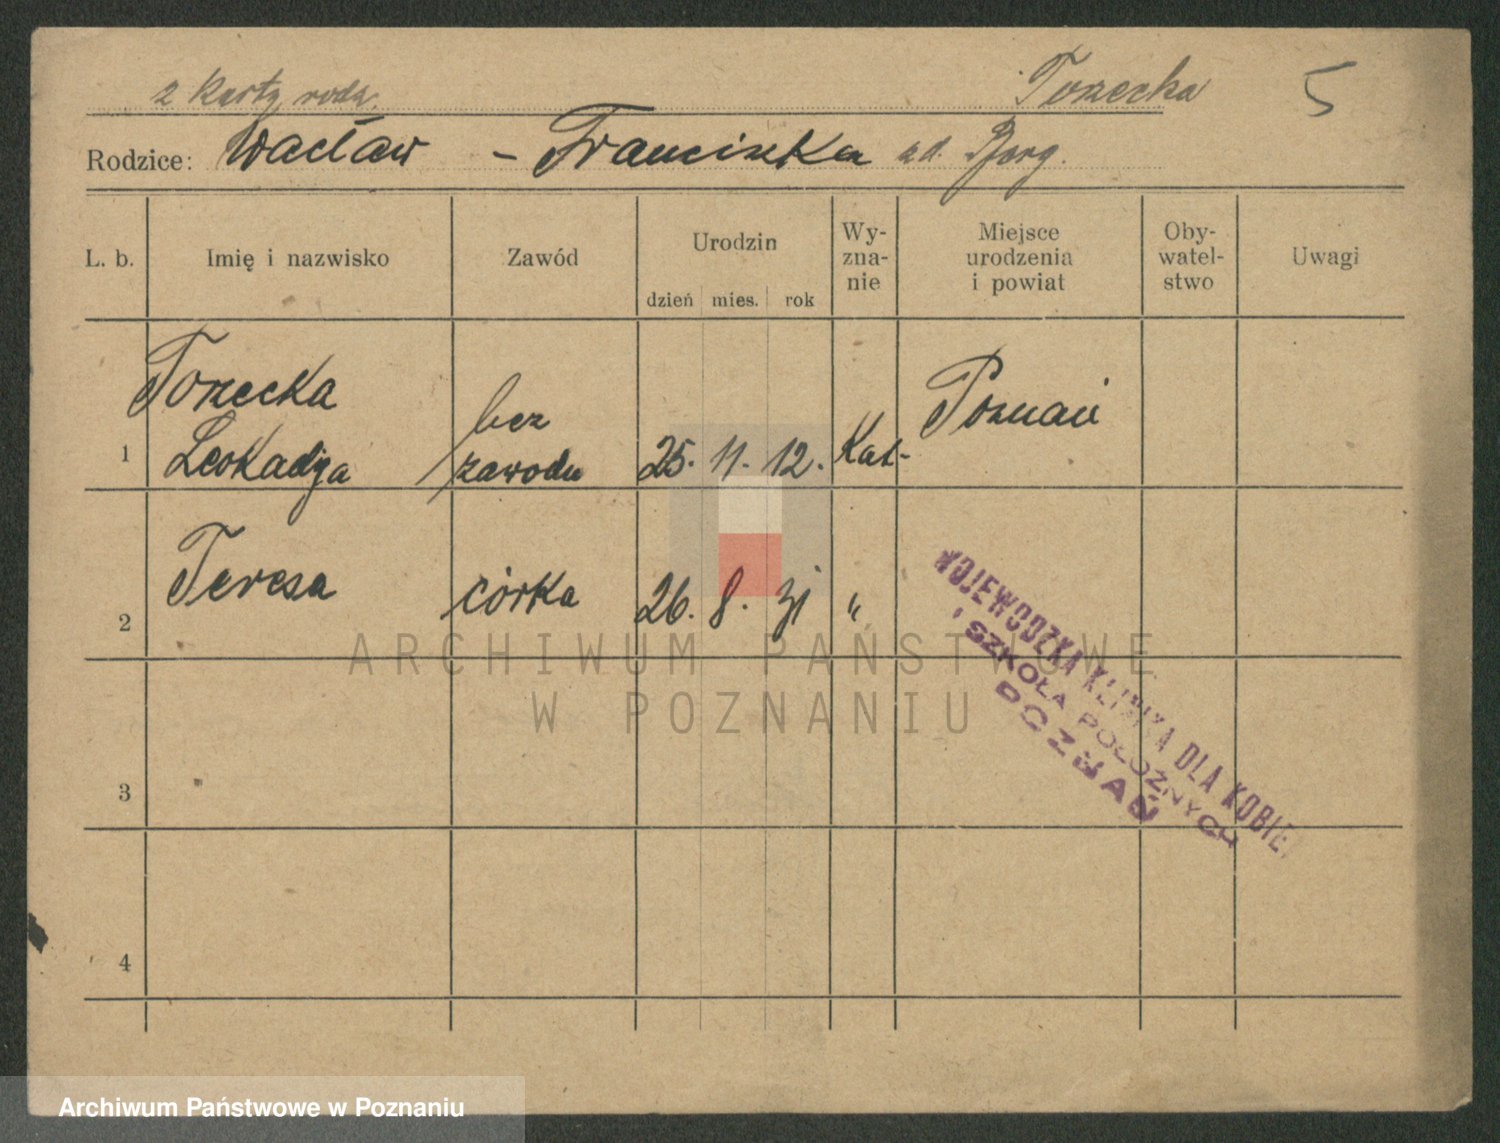 z karty rodz. Tozecka 5
Rodzice: Wacław - Franciszka
L. b. Imię i nazwisko Zawód Urodzin Wy-zna-nie Miejsce urodzenia i powiat Oby-watel-stwo Uwagi
dzień mies. rok
Tozecka bez Poznań
1 Leokadja zawodu 25. 11. 12. Kat-
2 Teresa córka 26. 8. 31 "
3
4
WOJEWODZKA KLINIKA DLA KOBIET
I SZKOŁA POŁOŻNYCH
POZNAŃ
ARCHIWUM PAŃSTWOWE
W POZNANIU
Archiwum Państwowe w Poznaniu